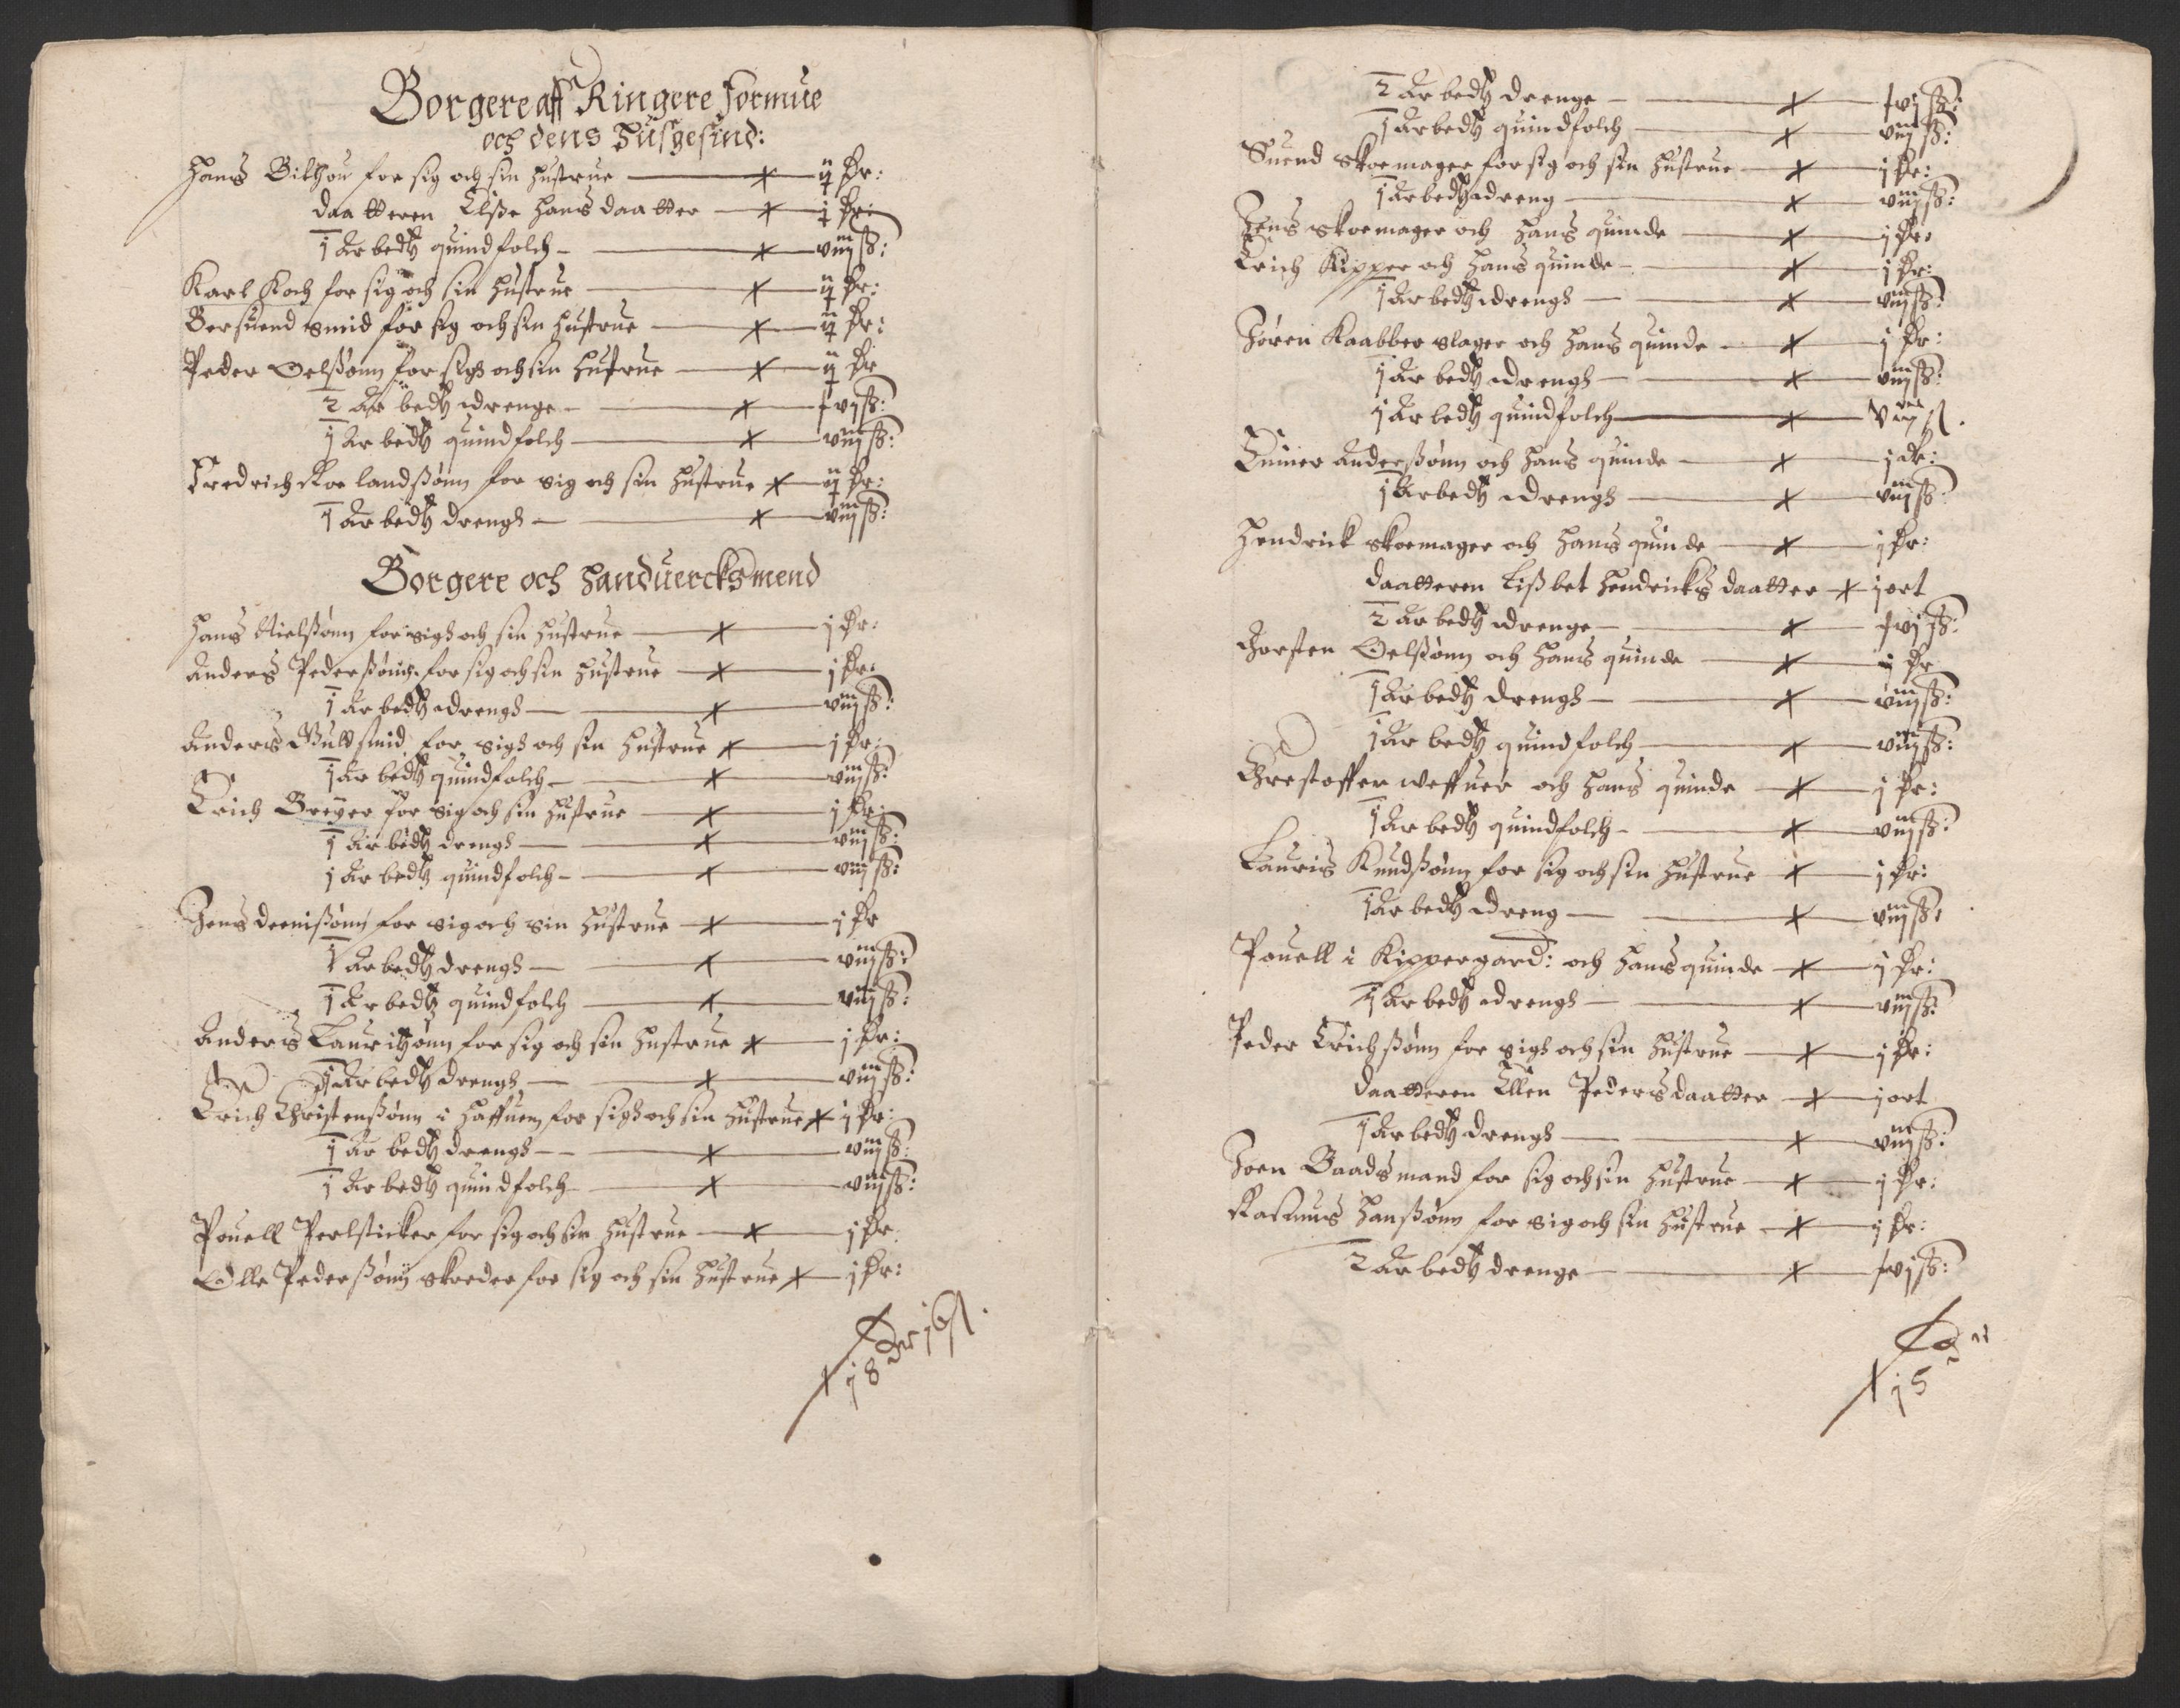 Borgere aff Ringere formue
och dens Husgesind:
Hans Bilhou for sig och sin hustrue — ij dr:
daatteren Elsse Hans daatter — j dr:
j Arbedtz quindfolch — viij ß:
Karl Koch for sig och sin hustrue — ij dr:
Bersuend smid for sig och sin hustrue — ij dr:
Peder Oelssønn for sigh och sin hustrue — ij dr
2 Arbedtz drenge — xvj ß:
j Arbedtz quindfolch — viij ß:
Fredrich Roelandssønn for sig och sin hustrue — ij dr:
j Arbedtz drengh — viij ß:
Borgere och Handuercksmend
Hans Nielssønn for sigh och sin hustrue — j dr:
Anders Pederssønn for sig och sin hustrue — j dr:
j Arbedtz drengh — viij ß:
Anders Guldsmid for sigh och sin hustrue — j dr:
j Arbedtz quindfolch — viij ß:
Erich Greyer for sig och sin hustrue — j dr:
j Arbedtz drengh — viij ß:
j Arbedtz quindfolch — viij ß:
Jens deenissønn for sig och sin hustrue — j dr
j Arbedtz drengh — viij ß:
j Arbedtz quindfolch — viij ß:
Anders Lauritzønn for sig och sin hustrue — j dr:
j Arbedtz drengh — viij ß:
Erich Christenssønn i Haffuen for sigh och sin hustrue — j dr:
j Arbedtz drengh — viij ß:
j Arbedtz quindfolch — viij ß:
Pouell Perlsticker for sig och sin hustrue — j dr
Olle Pederssønn skreder for sig och sin hustrue — j dr:
18 dr 16 ß.
2 Arbedtz drenge — xvj ß:
j Arbedtz quindfolch — viij ß:
Suend skoemager for sig och sin hustrue — j dr:
j Arbedtz dreng — viij ß:
Jens skoemager och hans quinde — j dr:
Erich Kipper och hans quinde — j dr:
j Arbedtz drengh — viij ß:
Søren Kaabberslager och hans quinde — j dr:
j Arbedtz drengh — viij ß:
j Arbedtz quindfolch — viij ß.
Einer Anderssønn och hans quinde — j dr:
j Arbedtz drengh — viij ß
Hendrick skoemager och hans quinde — j dr:
daatteren Lissbet Hendricks daatter — j ort
2 Arbedtz drenge — xvj ß:
Thorsten Oelssønn och hans quinde — j dr
j Arbedtz drengh — viij ß:
j Arbedtz quindfolch — viij ß:
Chrestoffer weffuer och hans quinde — j dr:
j Arbedtz quindfolch — viij ß:
Lauris Knudssønn for sig och sin hustrue — j dr:
j Arbedtz dreng — viij ß:
Pouell i Kippergard: och hans quinde — j dr:
j Arbedtz drengh — viij ß:
Peder Erichssønn for sigh och sin hustrue — j dr:
daatteren Ellen Pedersdaatter — j ort
j Arbedtz drengh — viij ß:
Joen Baadsmand for sig och sin hustrue — j dr:
Rasmus Hanssønn for sig och sin hustrue — j dr:
2 Arbedtz drenge — xvj ß:
15